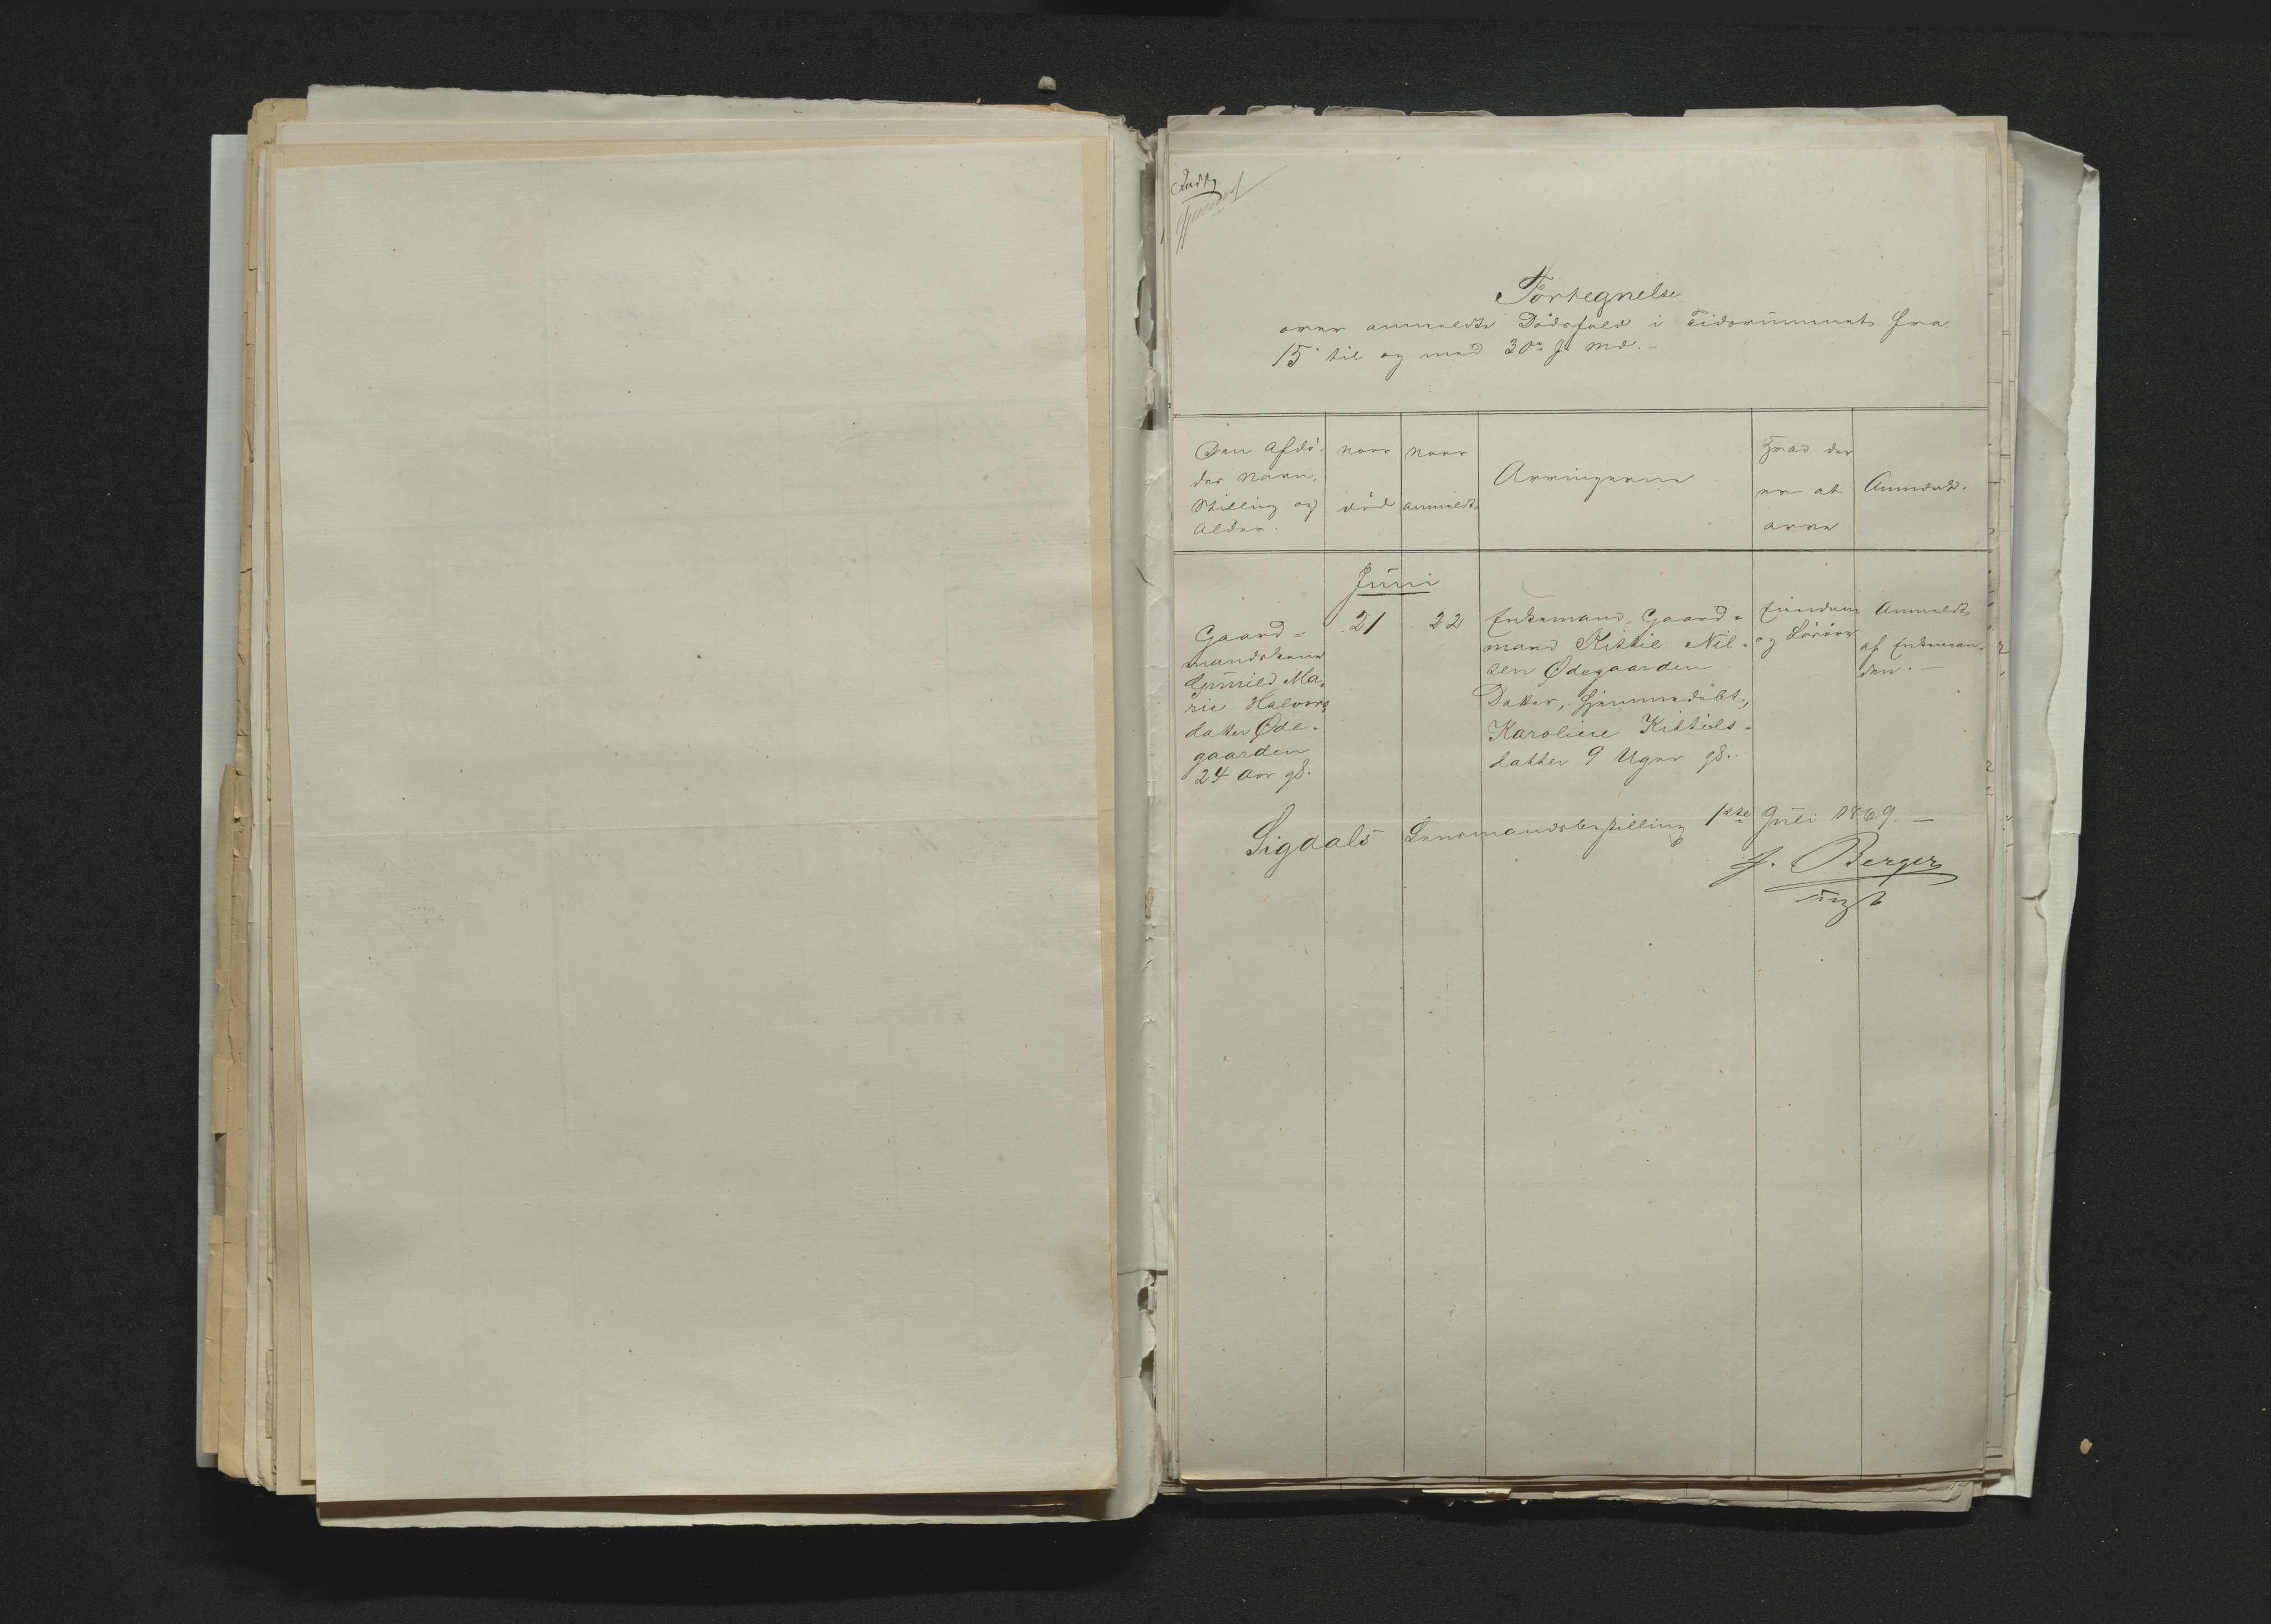 Fortegnelse
over anmeldte Dødsfald i Tidsrummet fra
15 til og med 30te f. Md. –
Den Afdø-
des Navn,
Stilling og
Alder.
Naar
død
Naar
anmeldt
Arvingerne
Hvad der
er at
arve
Anmærk.
Juni
Gaard=
mandskone
Gunild Ma-
rie Halvors
datter Øde-
gaarden
24 Aar gl.
21
22
Enkemand, Gaard=
mand Kittil Nil-
sen Ødegaarden
Datter, hjemmedøbt,
Karoline Kittils-
datter 9 Uger gl.
Eiendom
og Løsøre
Anmeldt
af Enkeman-
den. –
Sigdals Lensmandsbestilling 1ste Juli 1869. –
Berger